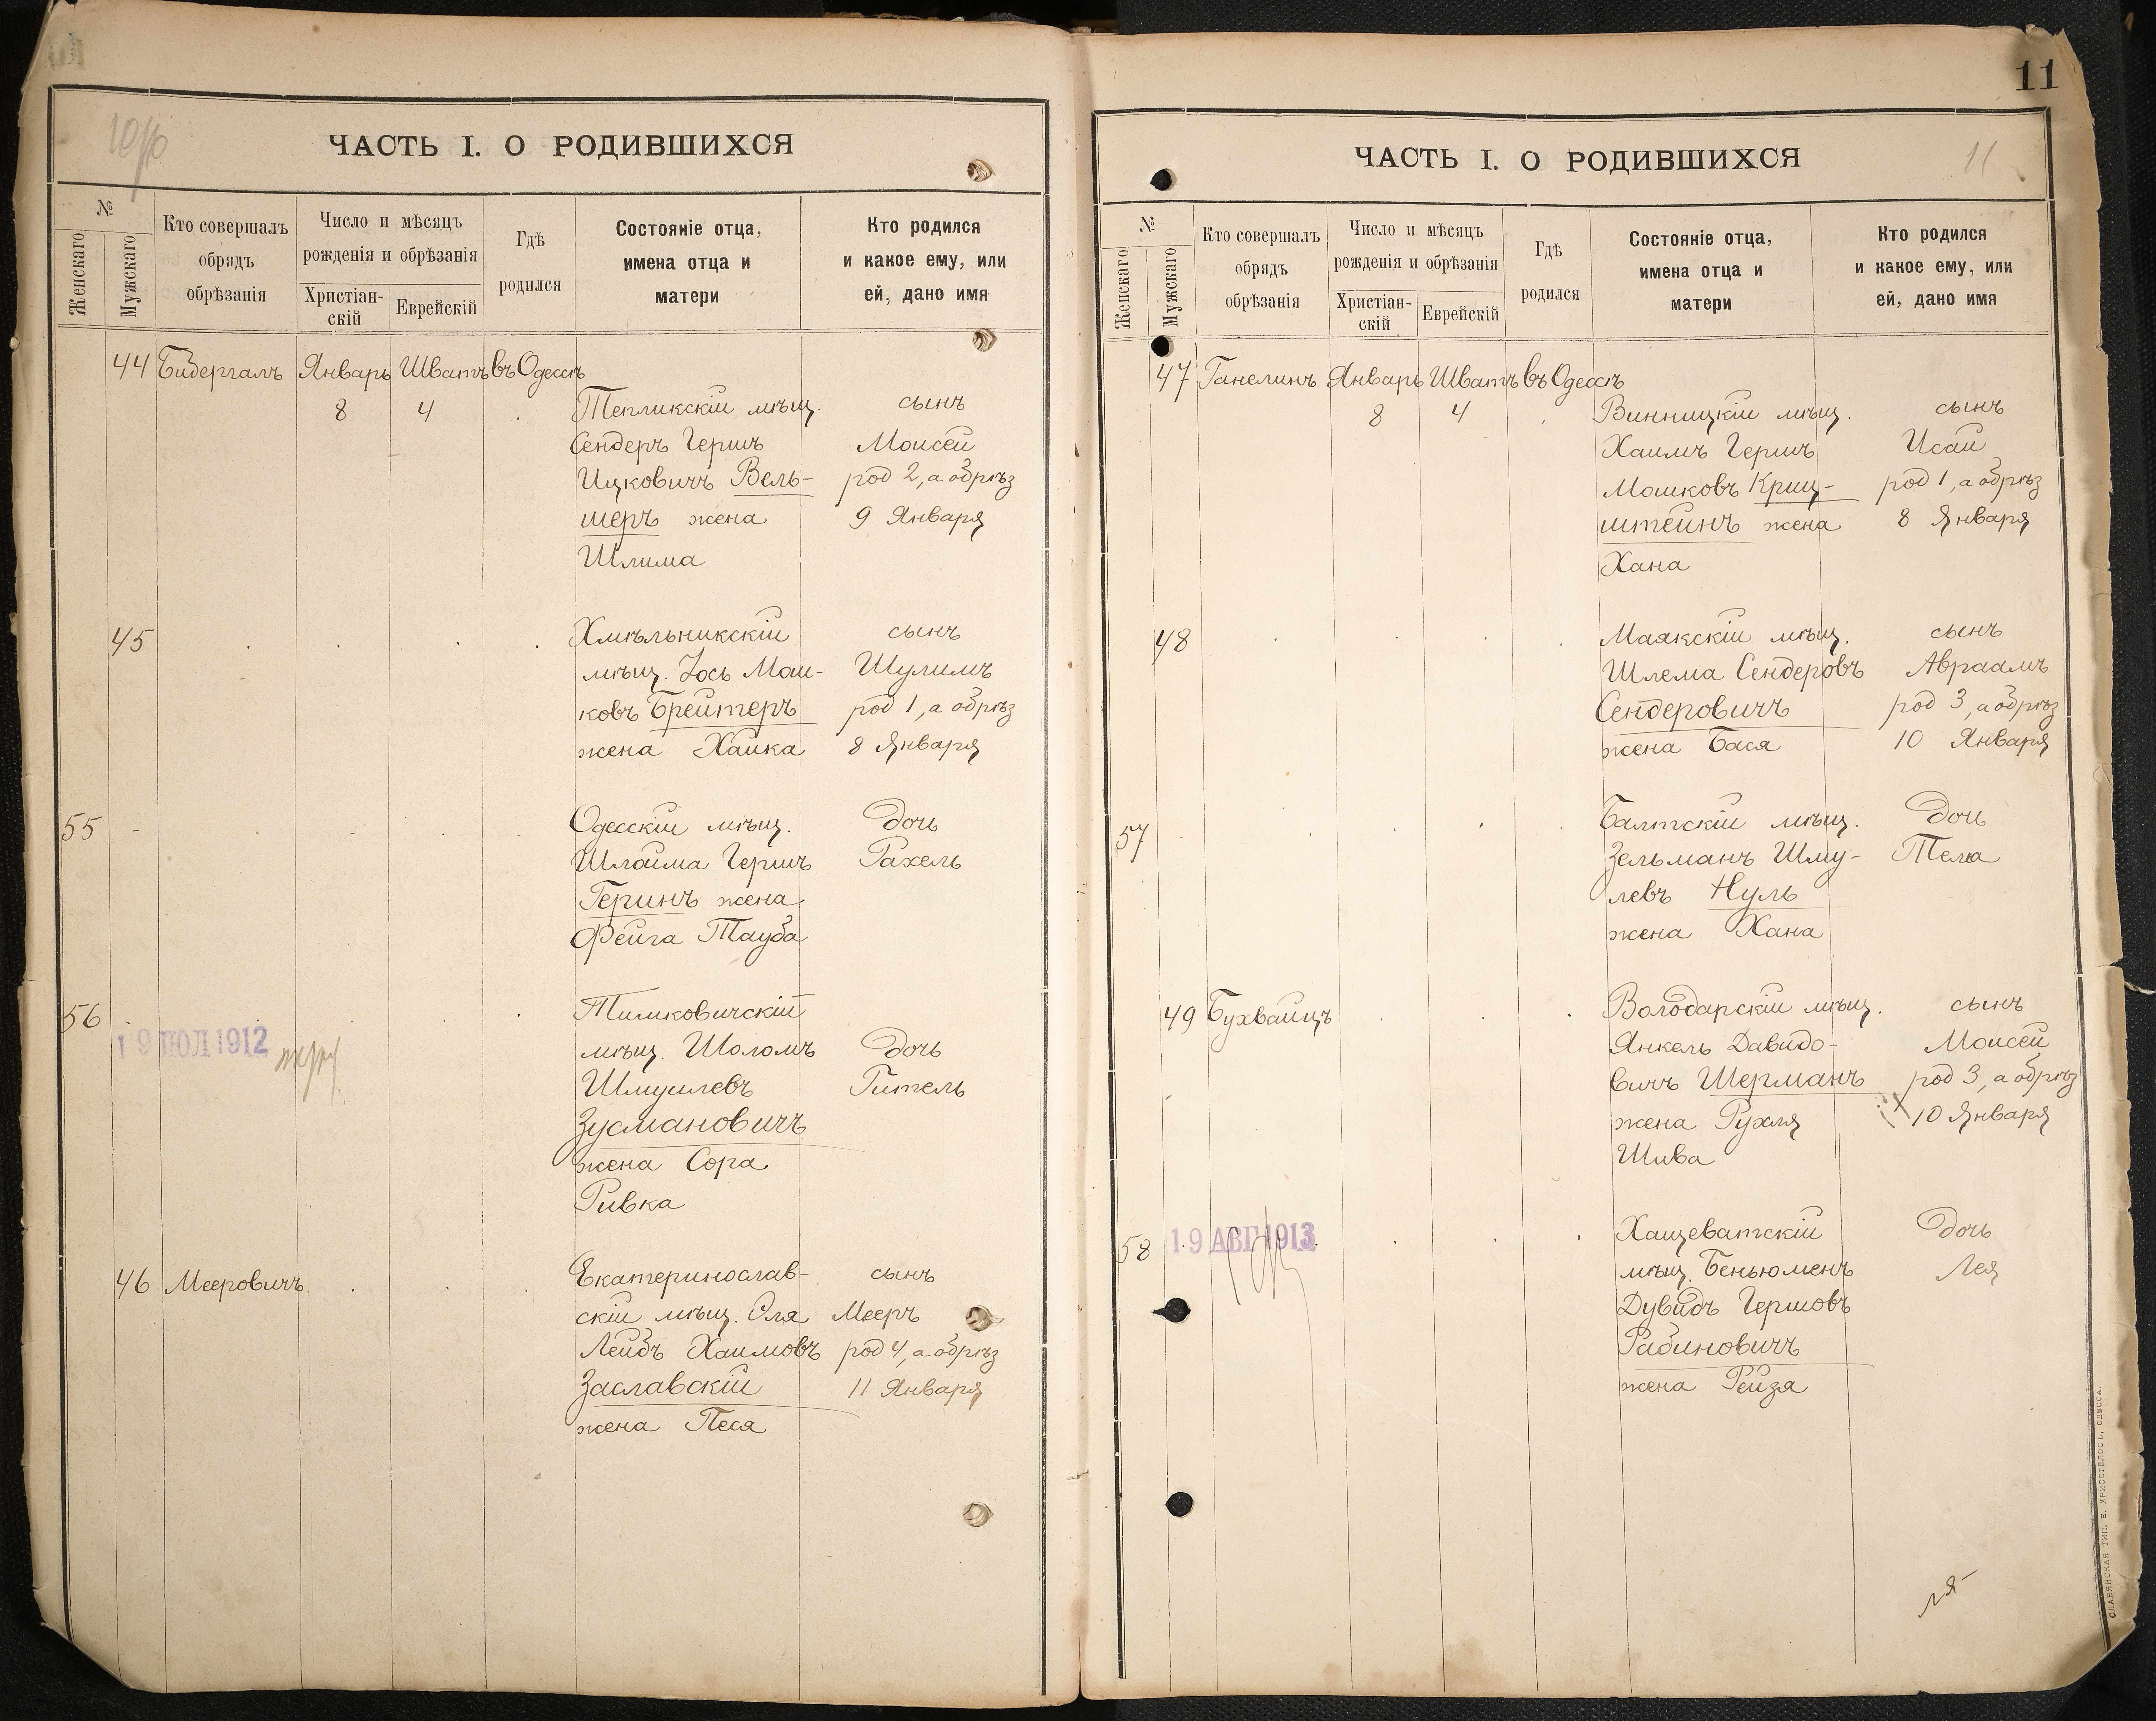 ЧАСТЬ I. О РОДИВШИХСЯ
№
Женскаго
Мужскаго
Кто совершалъ
обрядъ
обрѣзанія
Число и мѣсяцъ
рожденія и обрѣзанія
Христіан-
скій
Еврейскій
Гдѣ
родился
Состояніе отца,
имена отца и
матери
Кто родился
и какое ему, или
ей, дано имя
44 Бидергалъ Январь Шватъ въ Одессѣ
8 4 Тепликскій мѣщ. сынъ
Сендеръ Гершъ Моисей
Ицковичъ Вель- род 2, а обрѣз
шеръ жена 9 Января
Шлима
45 Хмѣльникскій сынъ
мѣщ. Іось Мош- Шулимъ
ковъ Брейтеръ род 1, а обрѣз
жена Хайка 8 Января
55 Одесскій мѣщ. дочь
Шлойма Гершъ Рахель
Геринъ жена
Фейга Тауба
56 Тимковичскій
19 ІЮЛ 1912
мѣщ. Шоломъ дочь
Шмуилевъ Гитель
Зусмановичъ
жена Сора
Ривка
46 Мееровичъ Екатеринослав- сынъ
скій мѣщ. Эля Мееръ
Лейбъ Хаимовъ род 4, а обрѣз
Заславскій 11 Января
жена Песя
11
ЧАСТЬ I. О РОДИВШИХСЯ
11
№
Женскаго
Мужскаго
Кто совершалъ
обрядъ
обрѣзанія
Число и мѣсяцъ
рожденія и обрѣзанія
Христіан-
скій
Еврейскій
Гдѣ
родился
Состояніе отца,
имена отца и
матери
Кто родился
и какое ему, или
ей, дано имя
47 Ганелинъ Январь Шватъ въ Одессѣ
8 4 Винницкій мѣщ. сынъ
Хаимъ Гершъ Исай
Мошковъ Криц- род 1, а обрѣз
штейнъ жена 8 Января
Хана
48 Маякскій мѣщ. сынъ
Шлема Сендеровъ Авраамъ
Сендеровичъ род 3, а обрѣз
жена Бася 10 Января
57 Балтскій мѣщ. дочь
Зельманъ Шму- Тема
левъ Нуль
жена Хана
49 Бухвайцъ Володарскій мѣщ. сынъ
Янкель Давидо- Моисей
вичъ Шерманъ род 3, а обрѣз
жена Рухля 10 Января
Шива
58 19 АВГ 1913 Хащеватскій дочь
мѣщ. Беньюменъ Лея
Дувидъ Гершовъ
Рабиновичъ
жена Рейзя
СЛАВЯНСКАЯ ТИП. Е. ХРИСОГЕЛОСЪ, ОДЕССА.